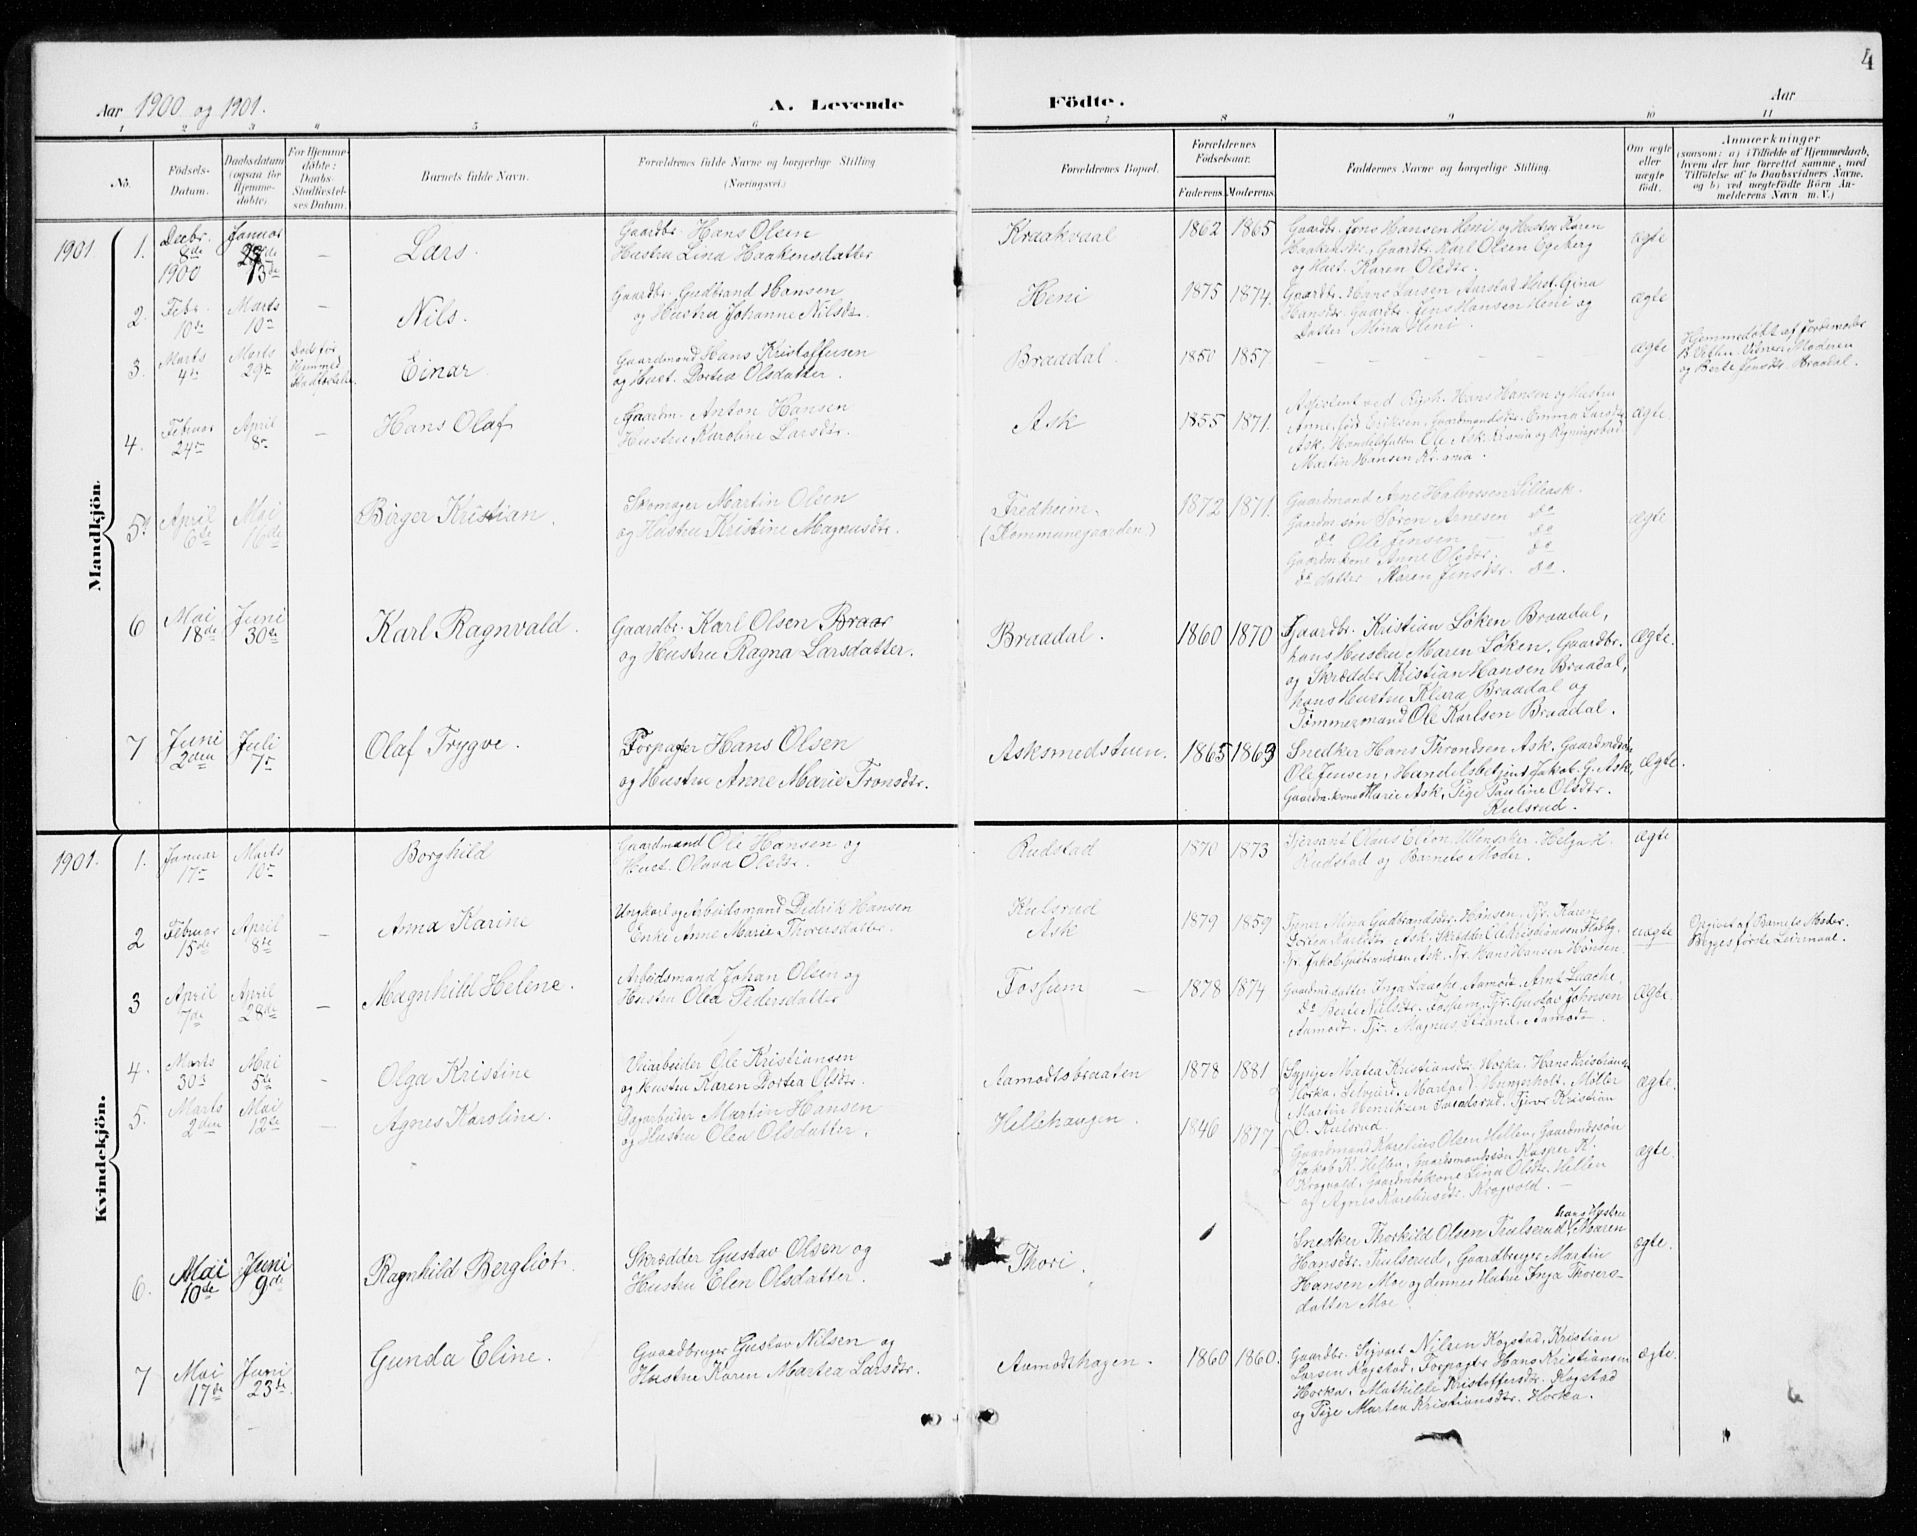 4
Aar 1900 og 1901.
A. Levende
Födte.
Aar
1 2 3 4 5 6 7 8 9 10 11
No.
Födsels-
Datum.
Daabsdatum
(ogsaa for
Hjemme-
döbte).
For Hjemme-
döbte:
Daabs-
Stadfæstel-
ses Datum.
Barnets fulde Navn.
Forældrenes fulde Navne og borgerlige Stilling
(Næringsvei.)
Forældrenes Bopæl.
Forældrenes
Födselsaar.
Faderens. Moderens.
Faddernes Navne og borgerlige Stilling.
Om ægte
eller
uægte
födt.
Anmærkninger
(saasom: a) i Tilfælde af Hjemmedaab,
hvem der har forrettet samme, med
Tilföielse af to Daabsvidners Navne,
og b) ved uægtefödte Börn An-
melderens Navn m. V.)
Mandkjön.
1901
1. Decbr. 8de 1900
Januar 13de
–
Lars.
Gaardbr. Hans Olsen
Hustru Lina Haakensdatter
Kraakvaal
1862 1865
Gaardbr. Jens Hansen Heni og Hustru Karen
Haakensdtr., Gaardbr. Karl Olsen Egeberg
og Hust. Karen Olsdtr.
ægte
2. Febr. 10de
Marts 10de
–
Nils.
Gaardbr. Gudbrand Hansen
og Hustru Johanne Nilsdtr.
Heni
1875 1874.
Gaardbr. Hans Larsen Aarstad, Hust. Gina
Hansdtr. Gaardbr. Jens Hansen Heni og
Datter Mina Heni.
ægte
3. Marts 4de
Marts 29de
Døds før
Hjemmed.
Stadfæstelse
Einar
Gaardmand Hans Kristoffersen
og Hust. Dortea Olsdatter.
Braadal
1850 1857.
ægte
Hjemmedøbt af Jordemoder
Vidner Moderen
og Berte Jensdtr. Braadal.
4. Februar 24de
April 8de
–
Hans Olaf
Gaardm. Anton Hansen
Hustru Karoline Larsdtr.
Ask
1855 1871.
Hans Hansen og Hustru
Anne, født Eriksen, Gaardmandsdtr. Emma Larsdtr.
Ask. Ole Ask Krania og
Martin Hansen Kr.ania.
ægte.
5. April 6de
Mai 16de
Birger Kristian.
Skomager Martin Olsen
og Hustru Kristine Magnusdtr.
Fredheim.
(Kommunegaarden)
1872 1871.
Gaardmand Arne Halvorsen Lilleask.
Gaardm. søn Søren Arnesen do
do Ole Jensen – do
Gaardm. kone Anne Olsdtr. do
do datter Maren Jensdtr. do.
ægte
6 Mai 18de
Juni 30de
Karl Ragnvald.
Gaardbr. Karl Olsen Braar
og Hustru Ragna Larsdatter.
Braadal.
1860 1870
Gaardbr. Kristian Løken Braadal,
hans Hustru Maren Løken, Gaardbr.
og Skrædder Kristian Hansen Braadal,
hans Hustru Klara Braadal og
Tømmermand Ole Karlsen Braadal.
ægte.
7 Juni 2den
Juli 7de
Olaf Trygve.
Forpagter Hans Olsen
og Hustru Anne Marie Tronsdtr.
Asksmedstuen.
1865 1869
Snedker Hans Throndsen Ask. Gaardmdssøn
Ole Jensen, Handelsbetjent Jakob. G. Ask,
Gaardm.kone Marie Ask, Pige Pauline Olsdtr.
Kulsrud.
ægte.
Kvindekjön.
1901.
1. Januar 17de
Marts 10de
Borghild
Gaardmand Ole Hansen og
Hust. Olava Olsdtr.
Rudstad
1870 1873
Sersant Olaus Ullensaker. Helga H.
Rudstad og Barnets Moder.
ægte
2 Februar 15de
April 8de
–
Anna Karine
Ungkarl og Arbeidsmand Didrik Hansen
Enke Anne Marie Thorersdatter.
Kulsrud
Ask
1879 1859
Mina Gudbrandsdtr. Hønsen, Tjr. Karen
Ask, Skrædder Ole Kristiansen
Tjr. Jakob Gudbrandsen Ask, Tjr. Hans Hansen Hønsen.
uægte
Opgivet af Barnets Moder.
Begges første Leiermaal.
3 April 7de
April 28de
–
Magnhild Helene.
Arbeidsmand Johan Olsen og
Hustru Olea Pedersdatter
Fossum –
1878 1874
Gaardmdsdatter Inga Laache, Aamot, Arnt Laache,
do Berte Nilsdtr. Fossum, Tjr. Gustav Johnsen
Aamodt. Tjr. Magnus Strand, Aamodt.
ægte
4. Marts 30te
Mai 5de
–
Olga Kristine
Veiarbeider Ole Kristiansen
og Hustru Karen Dortea Olsdtr.
Aamodtsbraaten
1878 1881
Sypige Matea Kristiansdtr. Horka, Hans Kristiansen
Horka, Selvejer Hungerholt. Møller
Martin Henriksen Tjener Kristian
O. Kulsrud.
ægte.
5. Marts 2den
Mai 12te
–
Agnes Karoline.
Dagarbeider Martin Hansen
og Hustru Olea Olsdatter.
Hellehaugen.
1846 1877
Gaardmand Karelius Olsen Hellen, Gaardmdssøn
Jakob K. Hellen, Gaardmandssøn Kasper K.
Kragvold, Gaardmdskone Lina Olsdtr. Hellen
og Agnes Kareliusdtr. Kragvold. –
ægte.
6. Mai 10de
Juni 9de
Ragnhild Bergliot.
Skrædder Gustav Olsen og
Hustru Elen Olsdatter.
Thori.
hans Hustru
Snedker Thorkild Olsen Fulserud, Maaren
Hansdtr. Fulserud, Gaardbruger Martin
Hansen Moe og dennes Hutru Inga Thorers-
datter Moe.
ægte.
7 Mai 17de
Juni 23de
Gunda Eline.
Gaardbruger Gustav Nilsen og
Hustru Karen Martea Larsdtr.
Aamodshagen.
1860 1860.
Gaardbr. Sigvart Nilsen Kogstad, Kristian
Larsen Kogstad, Forpagter Hans Kristiansen
Horka, Mathilde Kristoffersdtr. Kogstad
og Pige Martea Kristiansdtr. Horka.
ægte.